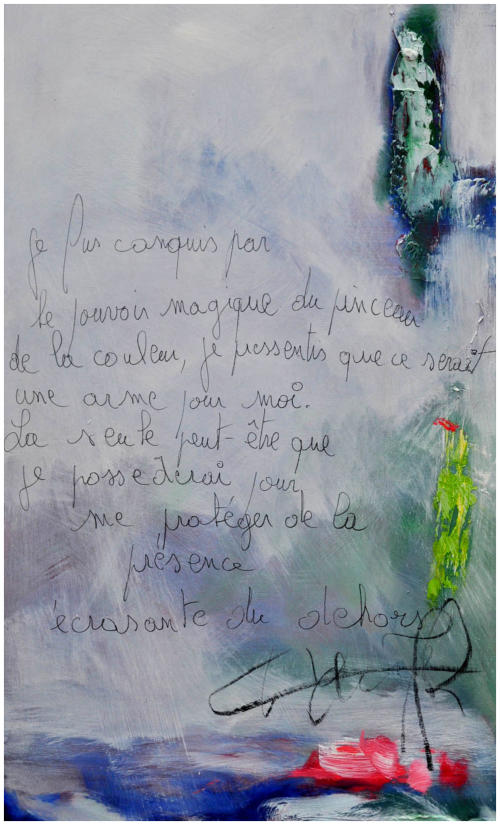 je fus conquis par
le pouvoir magique du pinceau
de la couleur, je pressentis que ce serait
une arme pour moi.
La seule peut-être que
je possederai pour
me protéger de la
présence
écrasante du dehors